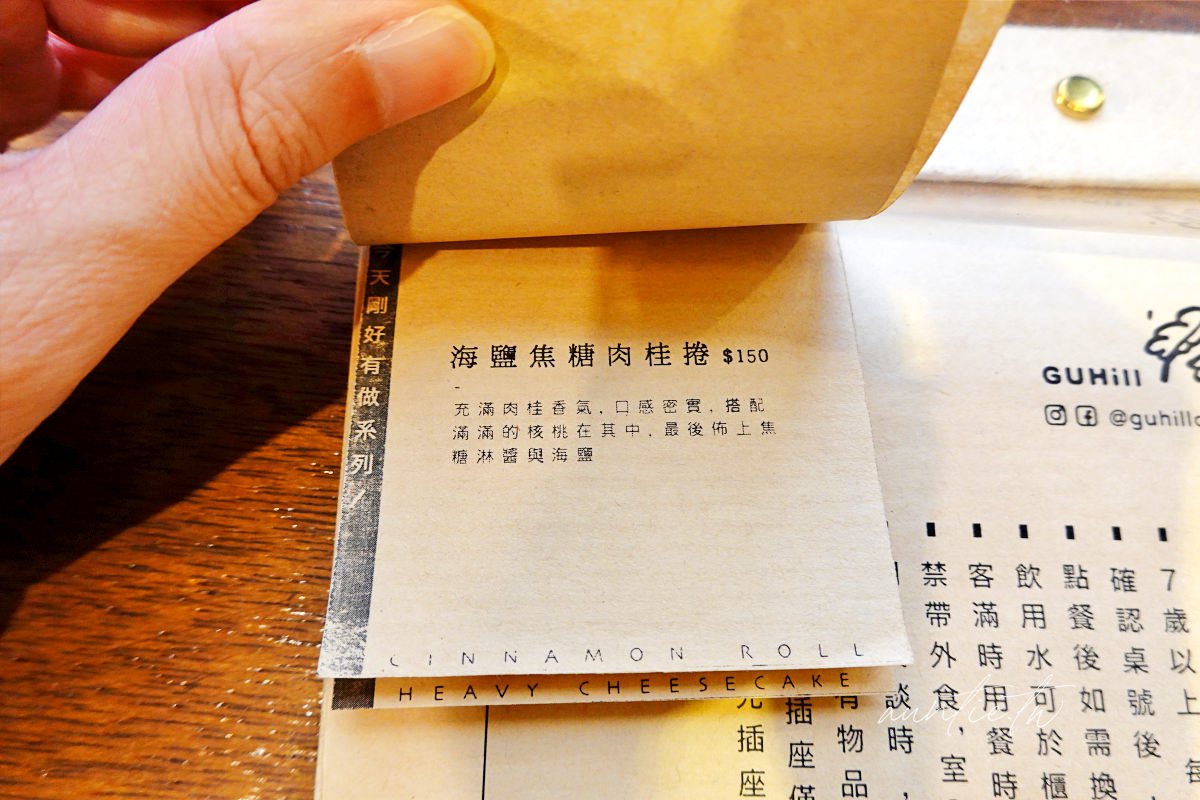 今天剛好有做系列/
海鹽焦糖肉桂捲 $150
-
充滿肉桂香氣,口感密實,搭配
滿滿的核桃在其中,最後佈上焦
糖淋醬與海鹽
CINNAMON ROLL
HEAVY CHEESECAKE
GUHill
@guhill
7歲以上
確認桌號後
點餐後如需換
飲用水可於櫃
客滿時用餐時
禁帶外食,室
談時,
有物品
插座僅
充插座
auntieta